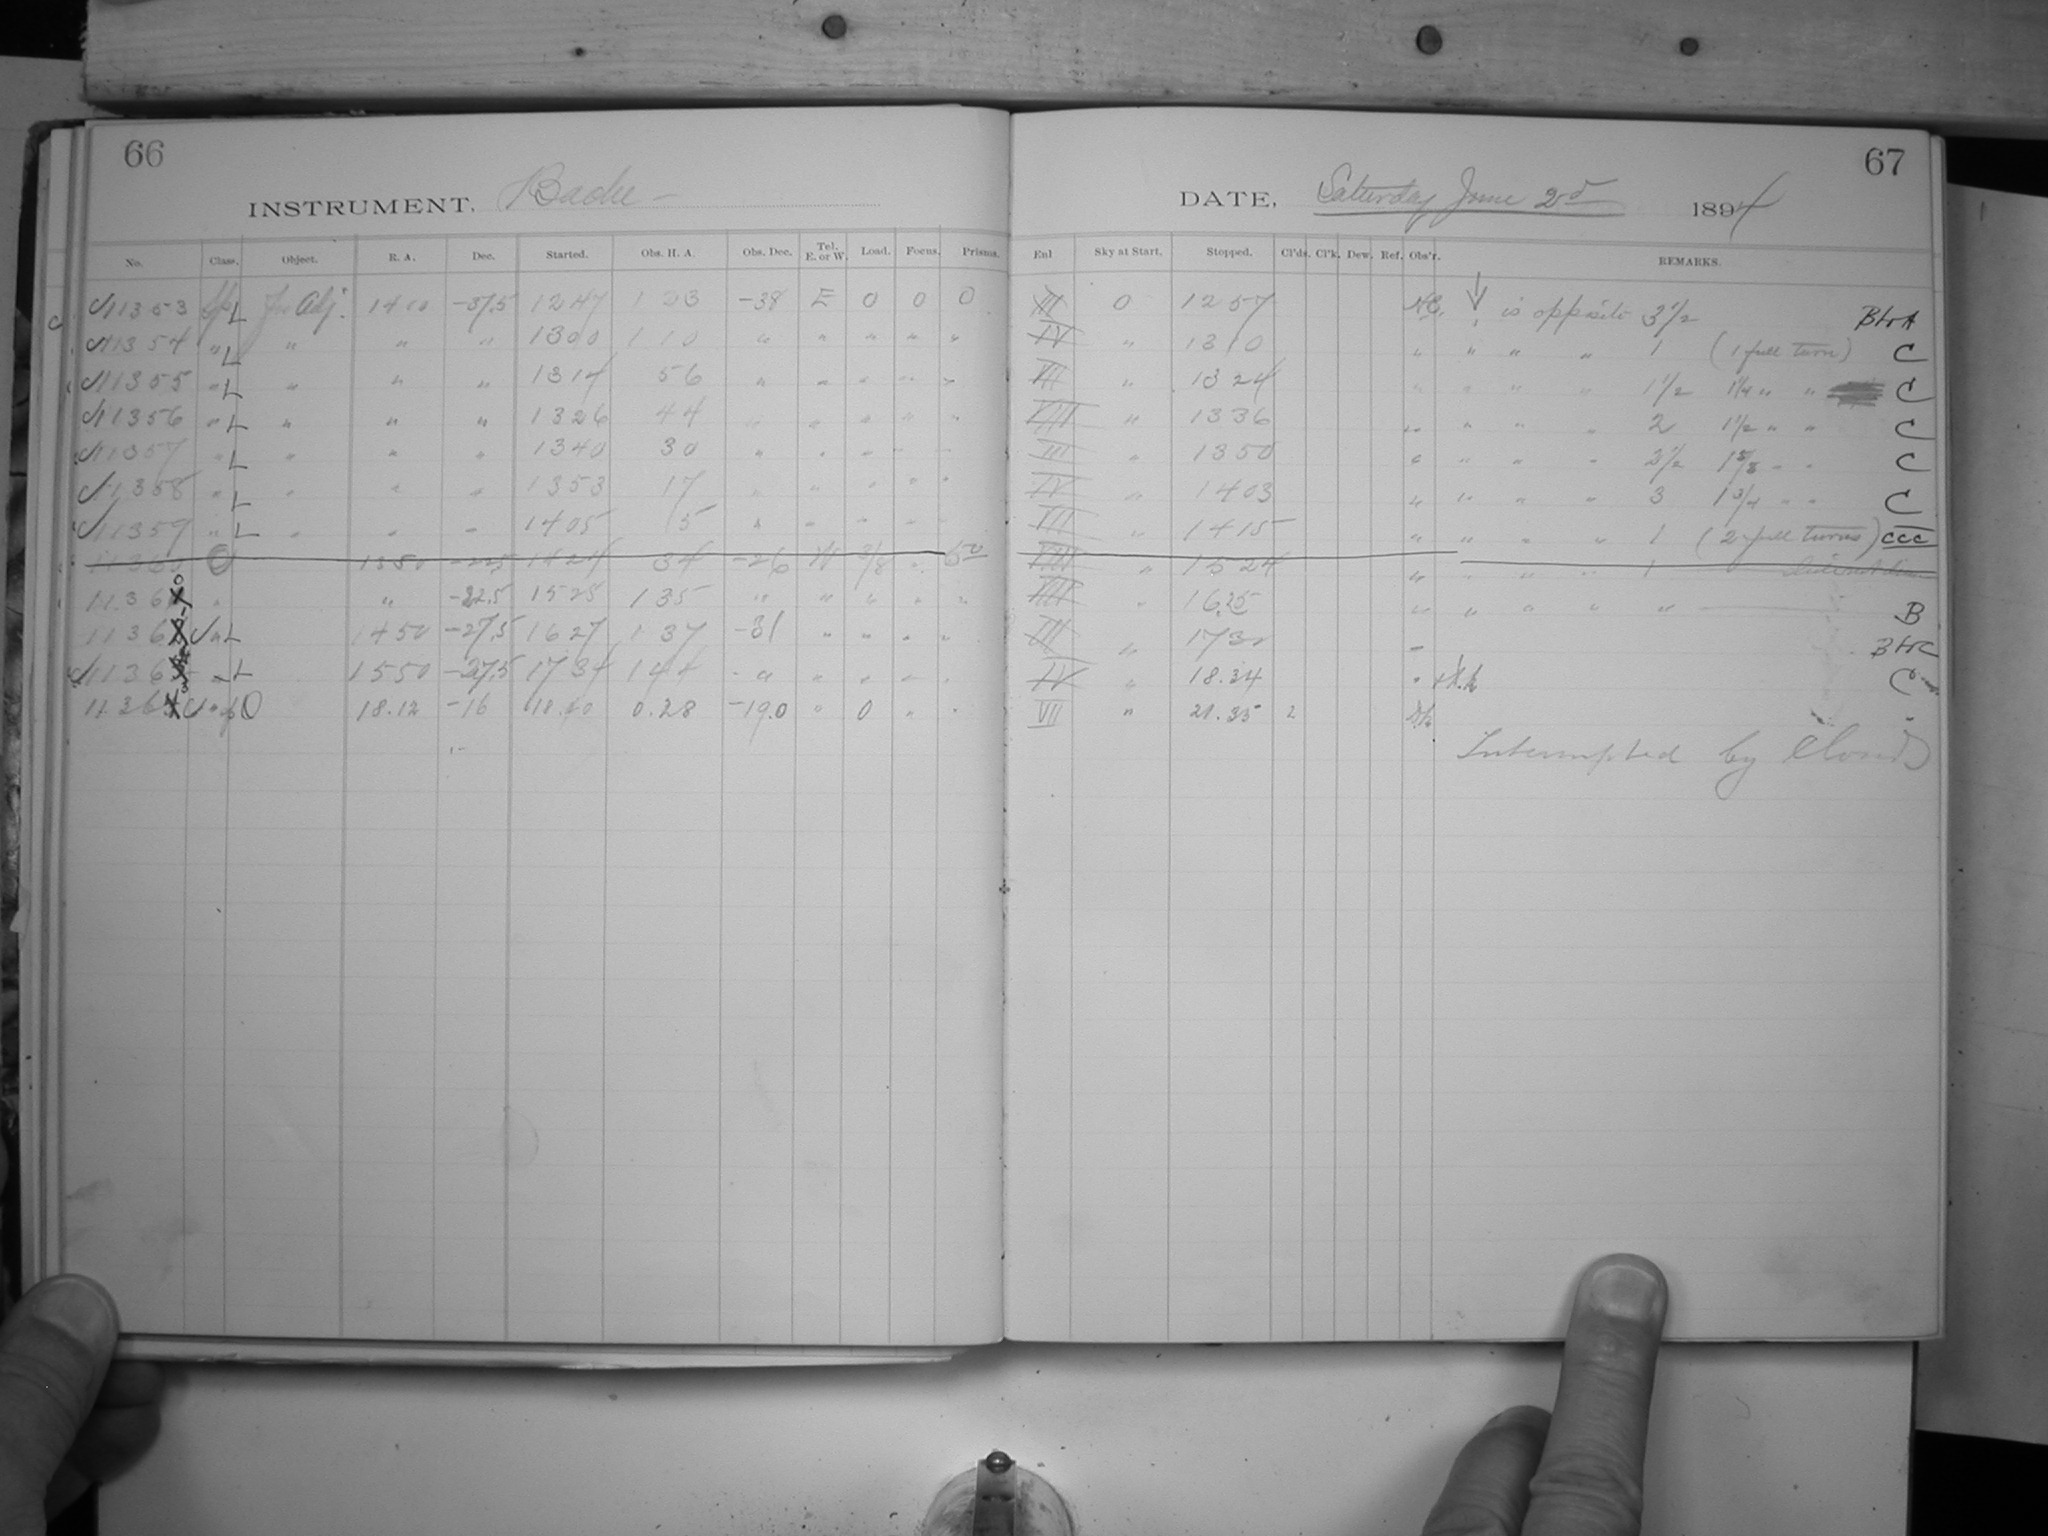 66
67
INSTRUMENT, Bache –
DATE, Saturday June 2nd 1894
No. Class. Object. R. A. Dec. Started. Obs. H. A. Obs. Dec. Tel. E. or W. Load. Focus. Prisms. Enl Sky at Start. Stopped. Cl'ds. Cl'k. Dew. Ref. Obs'r. REMARKS.
11353 Sp L for Adj. 1410 -37.5 1247 1 23 -38 E 0 0 0 III 0 1257 is opposite 3 1/2
11354 " L " " " 1300 1 10 " " " " " IV " 1310 " " " " 1 (1 full turn) C
11355 " L " " " 1314 56 " " " " " VII " 1324 " " " " 1 1/2 1 1/4 " " C
11356 " L " " " 1326 44 " " " " " VIII " 1336 " " " " 2 1 1/2 " " C
11357 " L " " " 1340 30 " " " " " III " 1350 " " " " 2 1/2 1 5/8 " " C
11358 " L " " " 1353 17 " " " " " IV " 1403 " " " " 3 1 3/4 " " C
11359 " L " " " 1405 5 " " " " " VII " 1415 " " " " 1 (2 full turns) CCC
11360 O 1350 1424 34 -26 W VIII " 1524 " " " " 1
" -22.5 1525 1 35 " " " " " VIII " 16.25 " " " " " B
" L 1450 -27.5 1627 1 37 -31 " " " " III " 1730
" L 1550 -27.5 1734 1 44 " " " " " IV " 18.34 C
18.12 -16 18.40 0.28 -19.0 " 0 " " VII " 21.35 2
Interrupted by Clouds